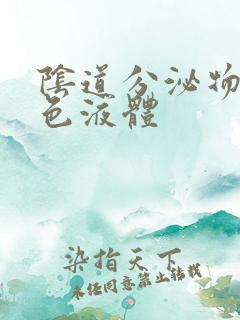 陰道分泌物
色液體
染指天下
未任同意禁止转载